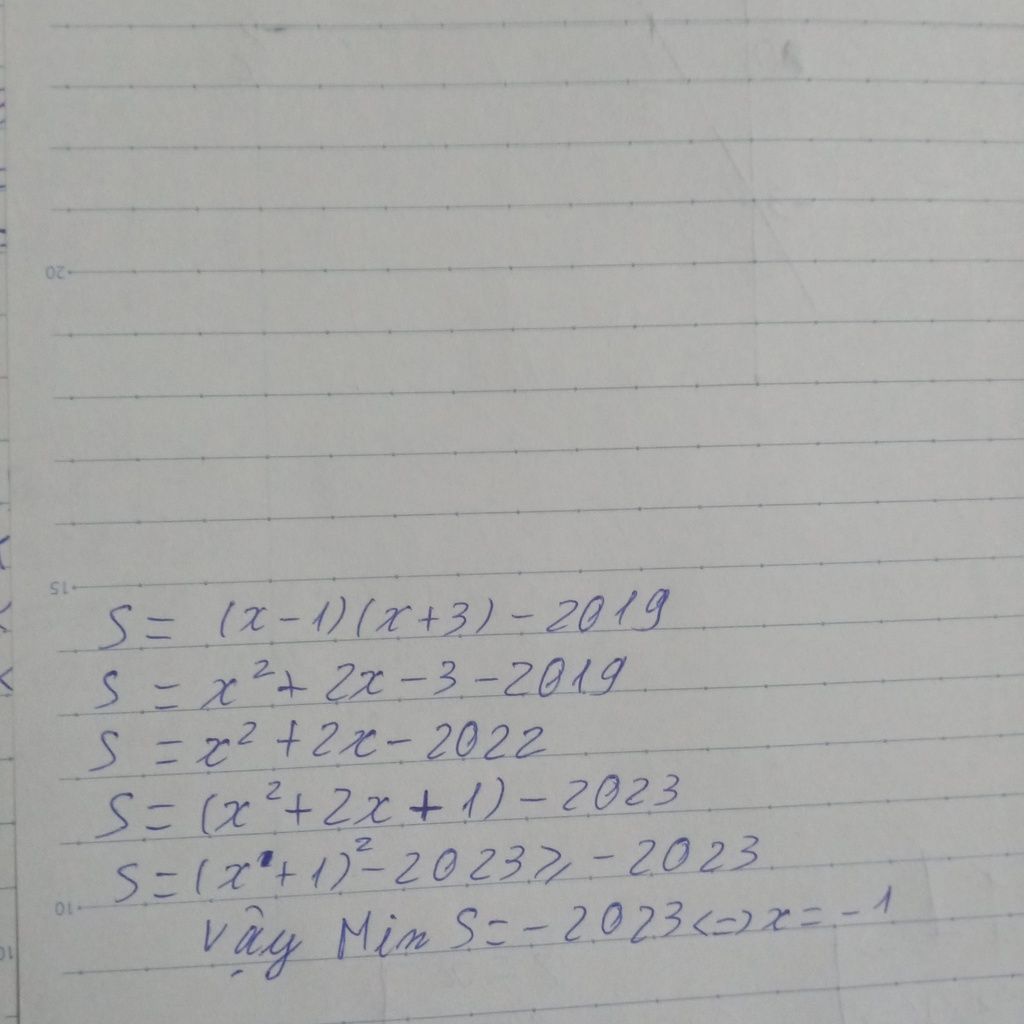 20
15
S = (x - 1)(x + 3) - 2019
S = x² + 2x - 3 - 2019
S = x² + 2x - 2022
S = (x² + 2x + 1) - 2023
S = (x + 1)² - 2023 ⩾ - 2023
10
Vậy Min S = - 2023 <=> x = - 1